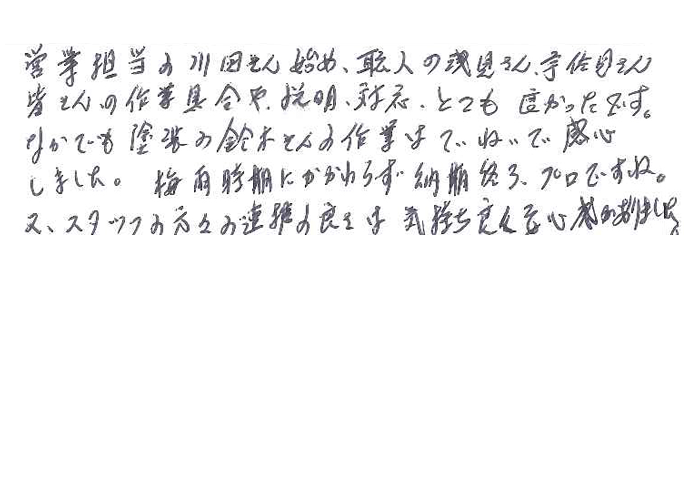 営業担当の川田さん始め、職人の浅見さん、宇佐見さん
皆さんの作業具合や、説明、対応、とても良かったです。
なかでも塗装の鈴木さんの作業はていねいで感心
しました。梅雨時期にかかわらず納期終了、プロですね。
又、スタッフの方々の連携の良さは気持ち良く安心感がありました